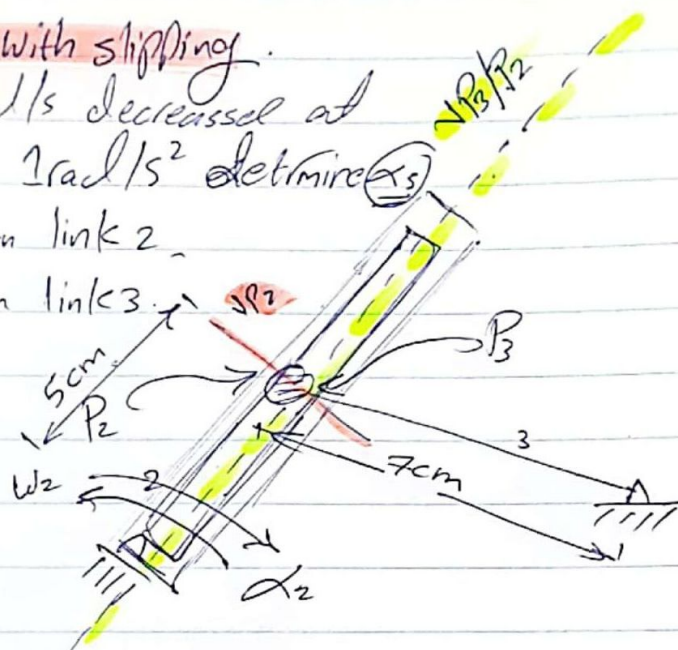 with slipping.
d/s decreassel at
1rad/s² detrmine αs
n link 2
n link3.
VP3/P2
VP2
5cm
P2
P3
3
7cm
W2
2
α2